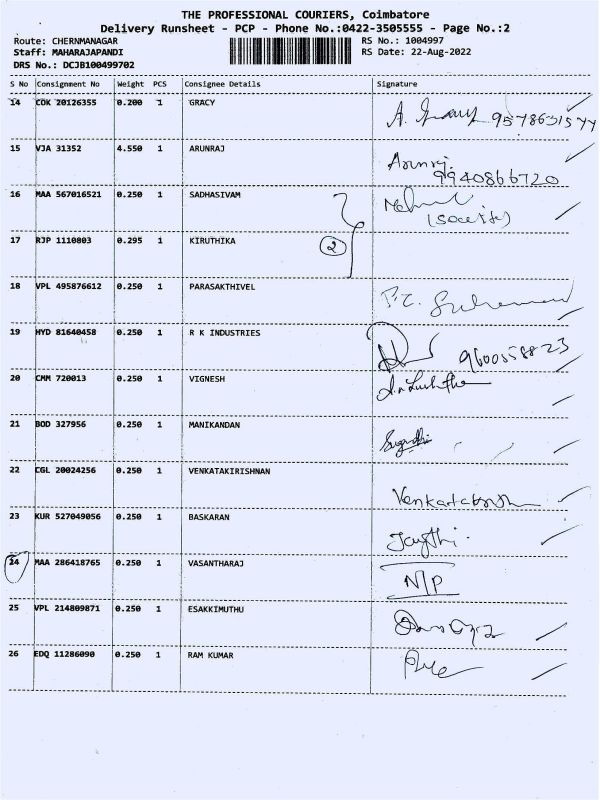 THE PROFESSIONAL COURIERS, Coimbatore
Delivery Runsheet - PCP - Phone No.:0422-3505555 - Page No.:2
Route: CHERNMANAGAR RS No.: 1004997
Staff: MAHARAJAPANDI RS Date: 22-Aug-2022
DRS No.: DCJB100499702
S No Consignment No Weight PCS Consignee Details Signature
14 COK 20126355 0.200 1 GRACY
A. Gracy 9578631577
15 VJA 31352 4.550 1 ARUNRAJ
Arunraj.
9940866720
16 MAA 567016521 0.250 1 SADHASIVAM
17 RJP 1110803 0.295 1 KIRUTHIKA
2
18 VPL 495876612 0.250 1 PARASAKTHIVEL
19 HYD 81640458 0.250 1 R K INDUSTRIES
9600558823
20 CMM 720013 0.250 1 VIGNESH
21 BOD 327956 0.250 1 MANIKANDAN
22 CGL 20024256 0.250 1 VENKATAKIRISHNAN
23 KUR 527049056 0.250 1 BASKARAN
24 MAA 286418765 0.250 1 VASANTHARAJ
N/P
25 VPL 214809871 0.250 1 ESAKKIMUTHU
26 EDQ 11286090 0.250 1 RAM KUMAR